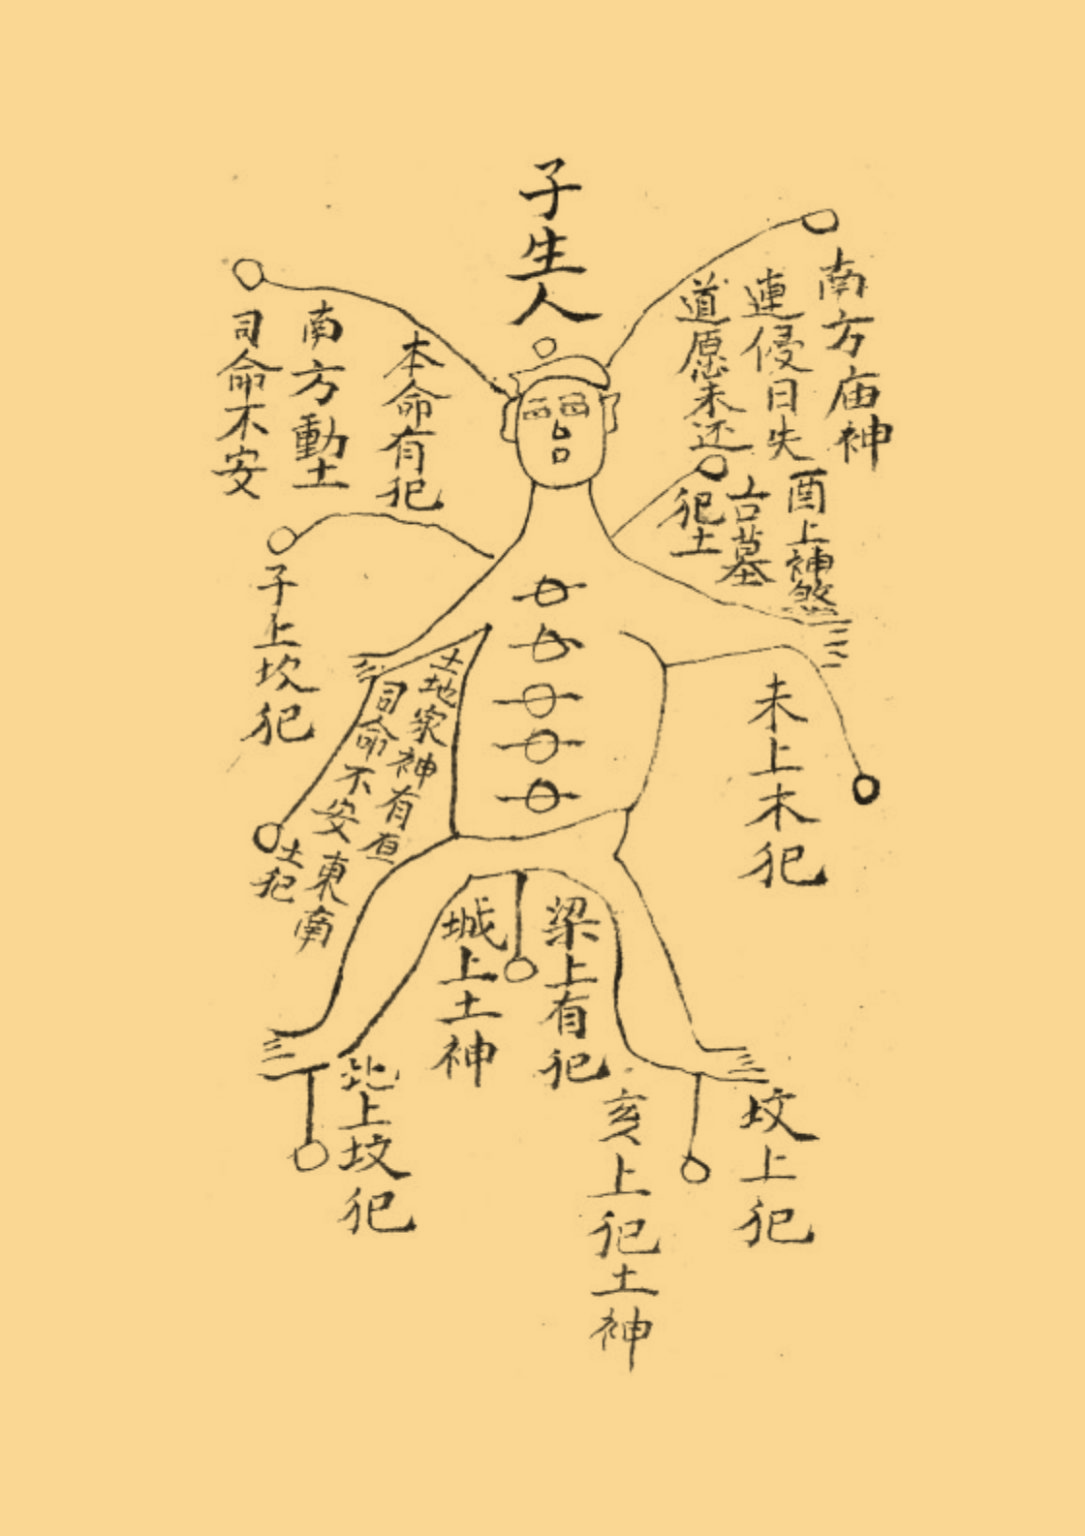 子生人
南方庙神
連侵日失
道愿未还
酉上神煞
古墓
犯土
本命有犯
南方動土
司命不安
子上坎犯
土地家神有
司命不安東南
土犯
未上木犯
梁上有犯
城上土神
北上坟犯
亥上犯土神
坟上犯